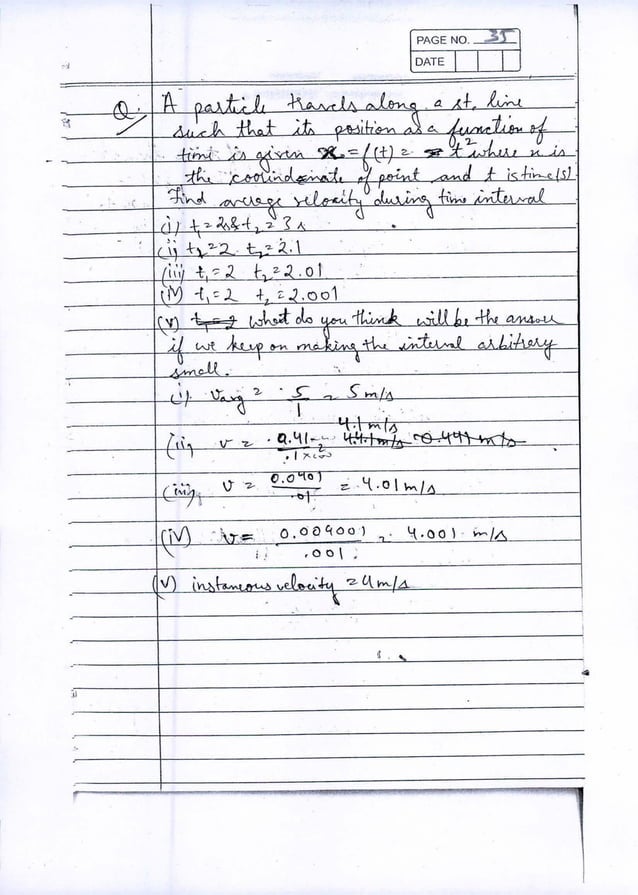 PAGE NO. 35
DATE
Q. A particle travels along a st. line
such that its position as a function of
time is given x = f(t) = t² where x is
the coordinate of point and t is time(s)
Find average velocity during time interval
(i) t₁ = 2s & t₂ = 3s
(ii) t₁ = 2 t₂ = 2.1
(iii) t₁ = 2 t₂ = 2.01
(iv) t₁ = 2 t₂ = 2.001
(v) t₁ = 2 what do you think will be the answer
if we keep on making the interval arbitrary
small.
(i). Vavg = 5/1 = 5 m/s
4.1 m/s
(ii) v = 0.41/.1 = 44.1 m/s = 0.441 m/s
(iii) v = 0.0401/.01 = 4.01 m/s
(iv) v = 0.004001/.001 = 4.001 m/s
(v) instaneous velocity = 4 m/s